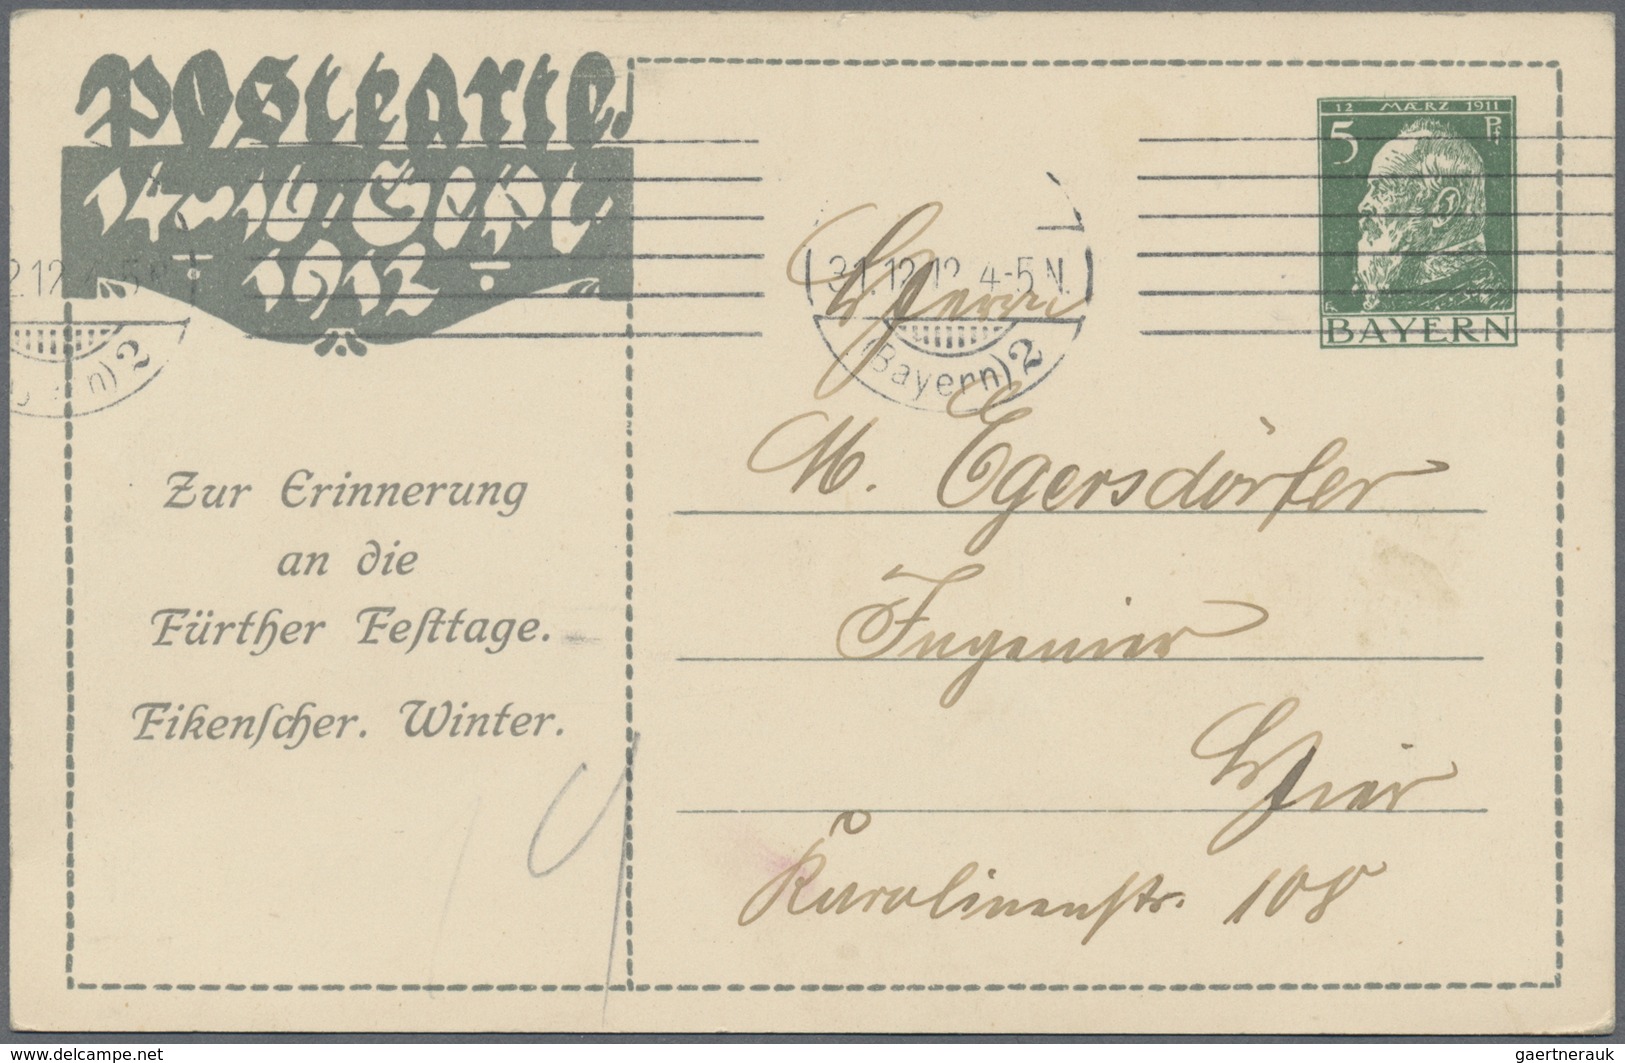 Postkarte.
14-16. Sept.
1912
12 MÆRZ 1911
5 Pf
BAYERN
31.12.12. 4-5 N.
(Bayern) 2
2.12. 4-5 N.
n) 2
Zur Erinnerung
an die
Fürther Festtage.
Eikenscher. Winter.
Herrn
M. Egersdörfer
Ingenier
Hier
Karolinenstr. 108
gaertnerauk @ www.delcampe.net
gaertnerauk